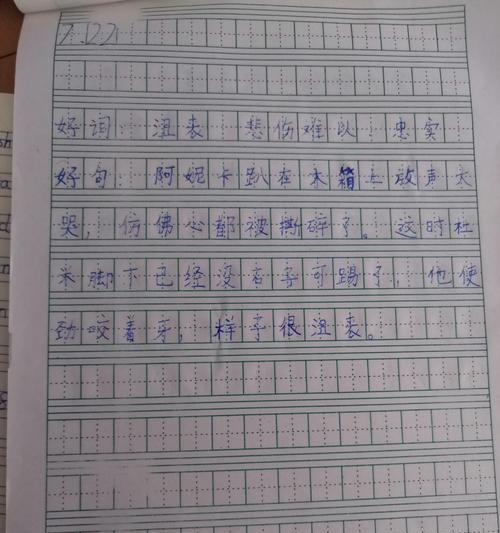 7.22
好词：沮丧 悲伤难以 忠实
好句：阿妮卡趴在木箱上放声大
哭，仿佛心都被撕碎了。这时杜
米脚下已经没石子可踢了，他使
劲咬着牙，样子很沮丧。